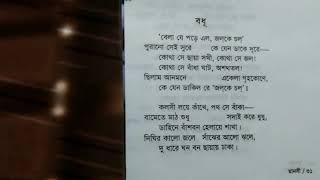 বধূ
‘বেলা যে পড়ে এল, জলকে চল্‌’
পুরানো সেই সুরে কে যেন ডাকে দূরে—
কোথা সে ছায়া সখী, কোথা সে জল!
কোথা সে বাঁধা ঘাট, অশথতল!
ছিলাম আনমনে একেলা গৃহকোণে,
কে যেন ডাকিল রে ‘জলকে চল্‌’॥
কলসী লয়ে কাঁখে, পথ সে বাঁকা—
বামেতে মাঠ শুধু সদাই করে ধুধু,
ডাহিনে বাঁশবন হেলায়ে শাখা।
দিঘির কালো জলে সাঁঝের আলো ঝলে,
দু ধারে ঘন বন ছায়ায় ঢাকা।
মানসী / ৩১